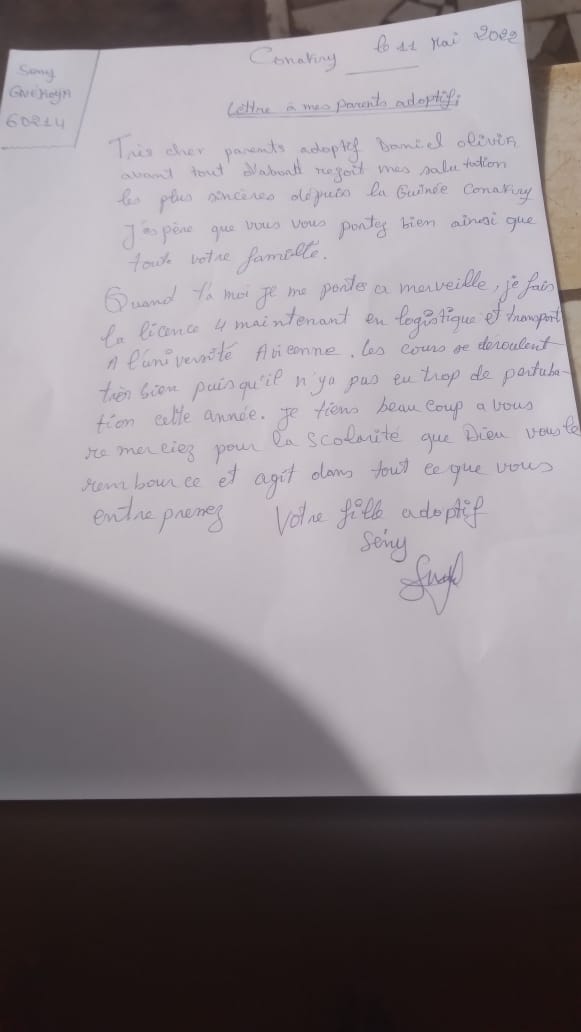 Conakry le 11 Mai 2022
Seny
GNEMOYA
60214
Lettre à mes parents adoptif;
Très cher parents adoptif Daniel olivin
avant tout d'abord reçoit mes salutation
les plus sincères dépuis la Guinée Conakry
J'éspère que vous vous portez bien ainsi que
toute votre famille.
Quand t'à moi je me portes a merveille, je fais
la licence 4 maintenant en logistique et transport
A l'université Avicenne. les cours se déroulent
très bien puisqu'il n'ya pas eu trop de pertuba-
tion cette année. je tiens beaucoup a vous
remerciez pour la scolarité que Dieu vous le
rembource et agit dans tout ce que vous
entreprenez Votre fille adoptif
Seny